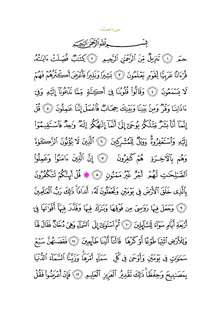 بِسْمِ ٱللَّهِ ٱلرَّحْمَٰنِ ٱلرَّحِيمِ
حمٓ ١ تَنزِيلٌ مِّنَ ٱلرَّحْمَٰنِ ٱلرَّحِيمِ ٢ كِتَٰبٌ فُصِّلَتْ ءَايَٰتُهُۥ
قُرْءَانًا عَرَبِيًّا لِّقَوْمٍ يَعْلَمُونَ ٣ بَشِيرًا وَنَذِيرًا فَأَعْرَضَ أَكْثَرُهُمْ فَهُمْ
لَا يَسْمَعُونَ ٤ وَقَالُوا۟ قُلُوبُنَا فِىٓ أَكِنَّةٍ مِّمَّا تَدْعُونَآ إِلَيْهِ وَفِىٓ
ءَاذَانِنَا وَقْرٌ وَمِنۢ بَيْنِنَا وَبَيْنِكَ حِجَابٌ فَٱعْمَلْ إِنَّنَا عَٰمِلُونَ ٥ قُلْ
إِنَّمَآ أَنَا۠ بَشَرٌ مِّثْلُكُمْ يُوحَىٰٓ إِلَىَّ أَنَّمَآ إِلَٰهُكُمْ إِلَٰهٌ وَٰحِدٌ فَٱسْتَقِيمُوٓا۟
إِلَيْهِ وَٱسْتَغْفِرُوهُ وَوَيْلٌ لِّلْمُشْرِكِينَ ٦ ٱلَّذِينَ لَا يُؤْتُونَ ٱلزَّكَوٰةَ
وَهُم بِٱلْءَاخِرَةِ هُمْ كَٰفِرُونَ ٧ إِنَّ ٱلَّذِينَ ءَامَنُوا۟ وَعَمِلُوا۟
ٱلصَّٰلِحَٰتِ لَهُمْ أَجْرٌ غَيْرُ مَمْنُونٍ ٨ قُلْ أَئِنَّكُمْ لَتَكْفُرُونَ
بِٱلَّذِى خَلَقَ ٱلْأَرْضَ فِى يَوْمَيْنِ وَتَجْعَلُونَ لَهُۥٓ أَندَادًا ذَٰلِكَ رَبُّ ٱلْعَٰلَمِينَ
٩ وَجَعَلَ فِيهَا رَوَٰسِىَ مِن فَوْقِهَا وَبَٰرَكَ فِيهَا وَقَدَّرَ فِيهَآ أَقْوَٰتَهَا فِىٓ
أَرْبَعَةِ أَيَّامٍ سَوَآءً لِّلسَّآئِلِينَ ١٠ ثُمَّ ٱسْتَوَىٰٓ إِلَى ٱلسَّمَآءِ وَهِىَ دُخَانٌ فَقَالَ لَهَا
وَلِلْأَرْضِ ٱئْتِيَا طَوْعًا أَوْ كَرْهًا قَالَتَآ أَتَيْنَا طَآئِعِينَ ١١ فَقَضَىٰهُنَّ سَبْعَ
سَمَٰوَاتٍ فِى يَوْمَيْنِ وَأَوْحَىٰ فِى كُلِّ سَمَآءٍ أَمْرَهَا وَزَيَّنَّا ٱلسَّمَآءَ ٱلدُّنْيَا
بِمَصَٰبِيحَ وَحِفْظًا ذَٰلِكَ تَقْدِيرُ ٱلْعَزِيزِ ٱلْعَلِيمِ ١٢ فَإِنْ أَعْرَضُوا۟ فَقُلْ